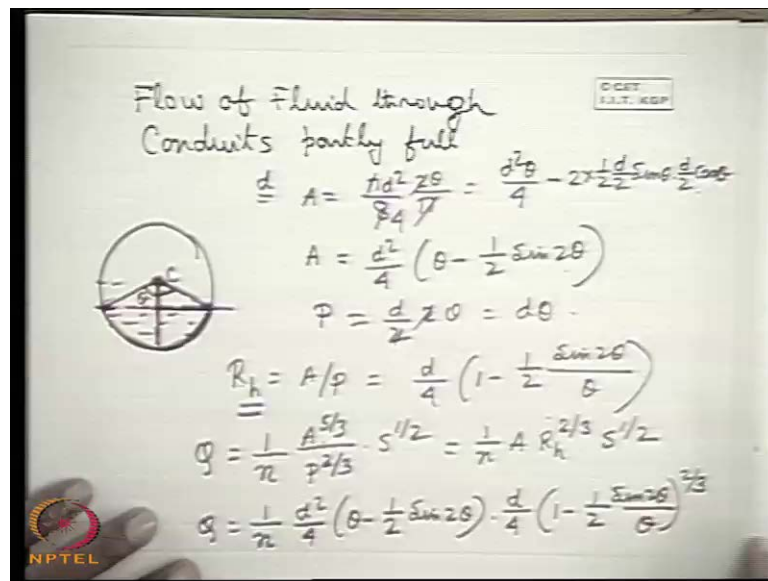 Flow of Fluid through
Conduits partly full
C CET
I.I.T. KGP
d A = πd²/84 2θ/π = d²θ/4 - 2x½ d/2 Sinθ. d/2 Cosθ
A = d²/4 (θ - 1/2 Sin 2θ)
C
θ
P = d/2 2θ = dθ.
R_h = A/P = d/4 (1 - 1/2 Sin2θ/θ)
Q = 1/n A^5/3 / P^2/3 . S^1/2 = 1/n A R_h^2/3 S^1/2
Q = 1/n d²/4 (θ - 1/2 Sin 2θ) . d/4 (1 - 1/2 Sin2θ/θ)^2/3
NPTEL